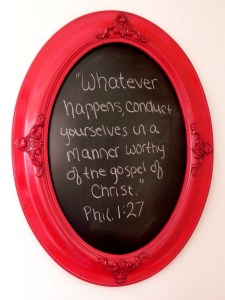 "Whatever
happens, conduct
yourselves in a
manner worthy
of the gospel of
Christ."
Phil 1:27